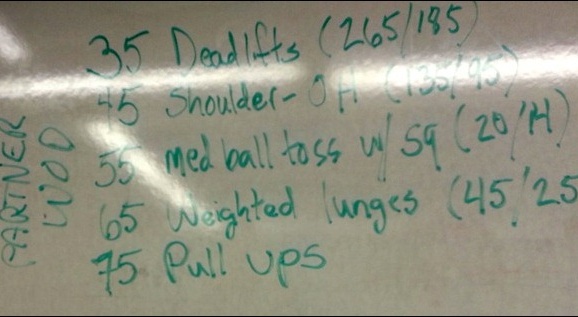 PARTNER
WOD
35 Deadlifts (265/185)
45 Shoulder-OH (135/95)
55 Med ball toss w/ sq (20/14)
65 Weighted lunges (45/25
75 Pull ups